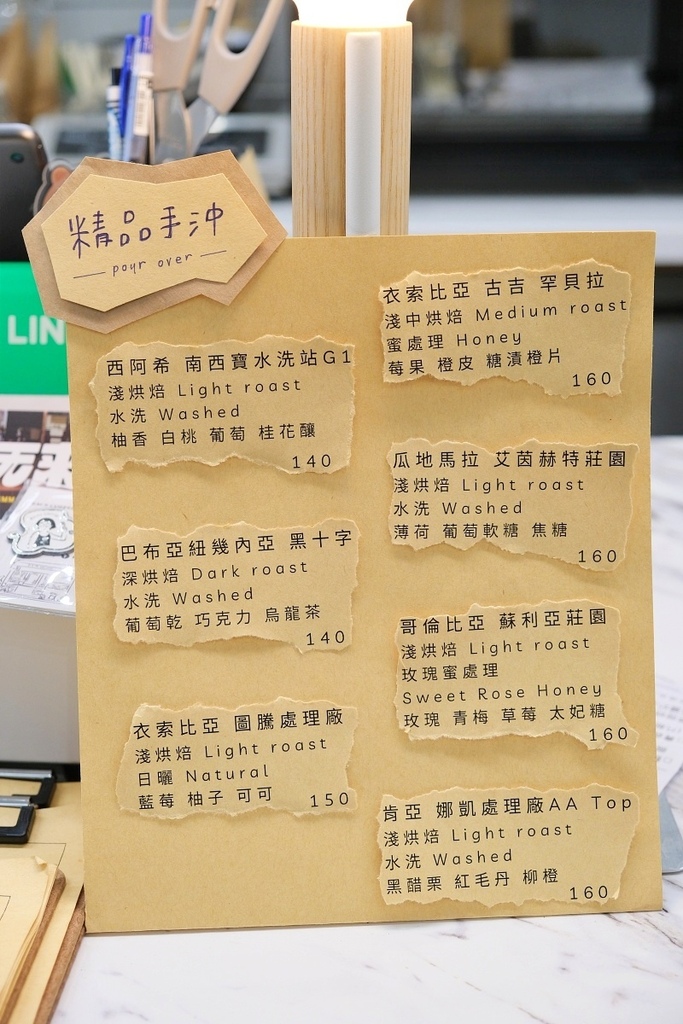 精品手沖
pour over
LIN
西阿希 南西寶水洗站G1
淺烘焙 Light roast
水洗 Washed
柚香 白桃 葡萄 桂花釀
140
巴布亞紐幾內亞 黑十字
深烘焙 Dark roast
水洗 Washed
葡萄乾 巧克力 烏龍茶
140
衣索比亞 圖騰處理廠
淺烘焙 Light roast
日曬 Natural
藍莓 柚子 可可
150
衣索比亞 古吉 罕貝拉
淺中烘焙 Medium roast
蜜處理 Honey
莓果 橙皮 糖漬橙片
160
瓜地馬拉 艾茵赫特莊園
淺烘焙 Light roast
水洗 Washed
薄荷 葡萄軟糖 焦糖
160
哥倫比亞 蘇利亞莊園
淺烘焙 Light roast
玫瑰蜜處理
Sweet Rose Honey
玫瑰 青梅 草莓 太妃糖
160
肯亞 娜凱處理廠AA Top
淺烘焙 Light roast
水洗 Washed
黑醋栗 紅毛丹 柳橙
160